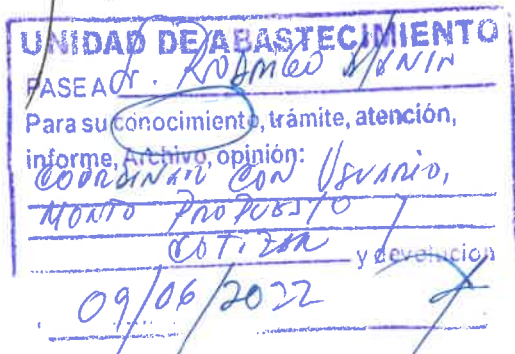 UNIDAD DE ABASTECIMIENTO
PASE A Sr. RODRIGO MANIN
Para su conocimiento, trámite, atención,
informe, Archivo, opinión:
COORDINAR CON USUARIO,
MONTO PROPUESTO
COTIZAR y devolución
09/06/2022